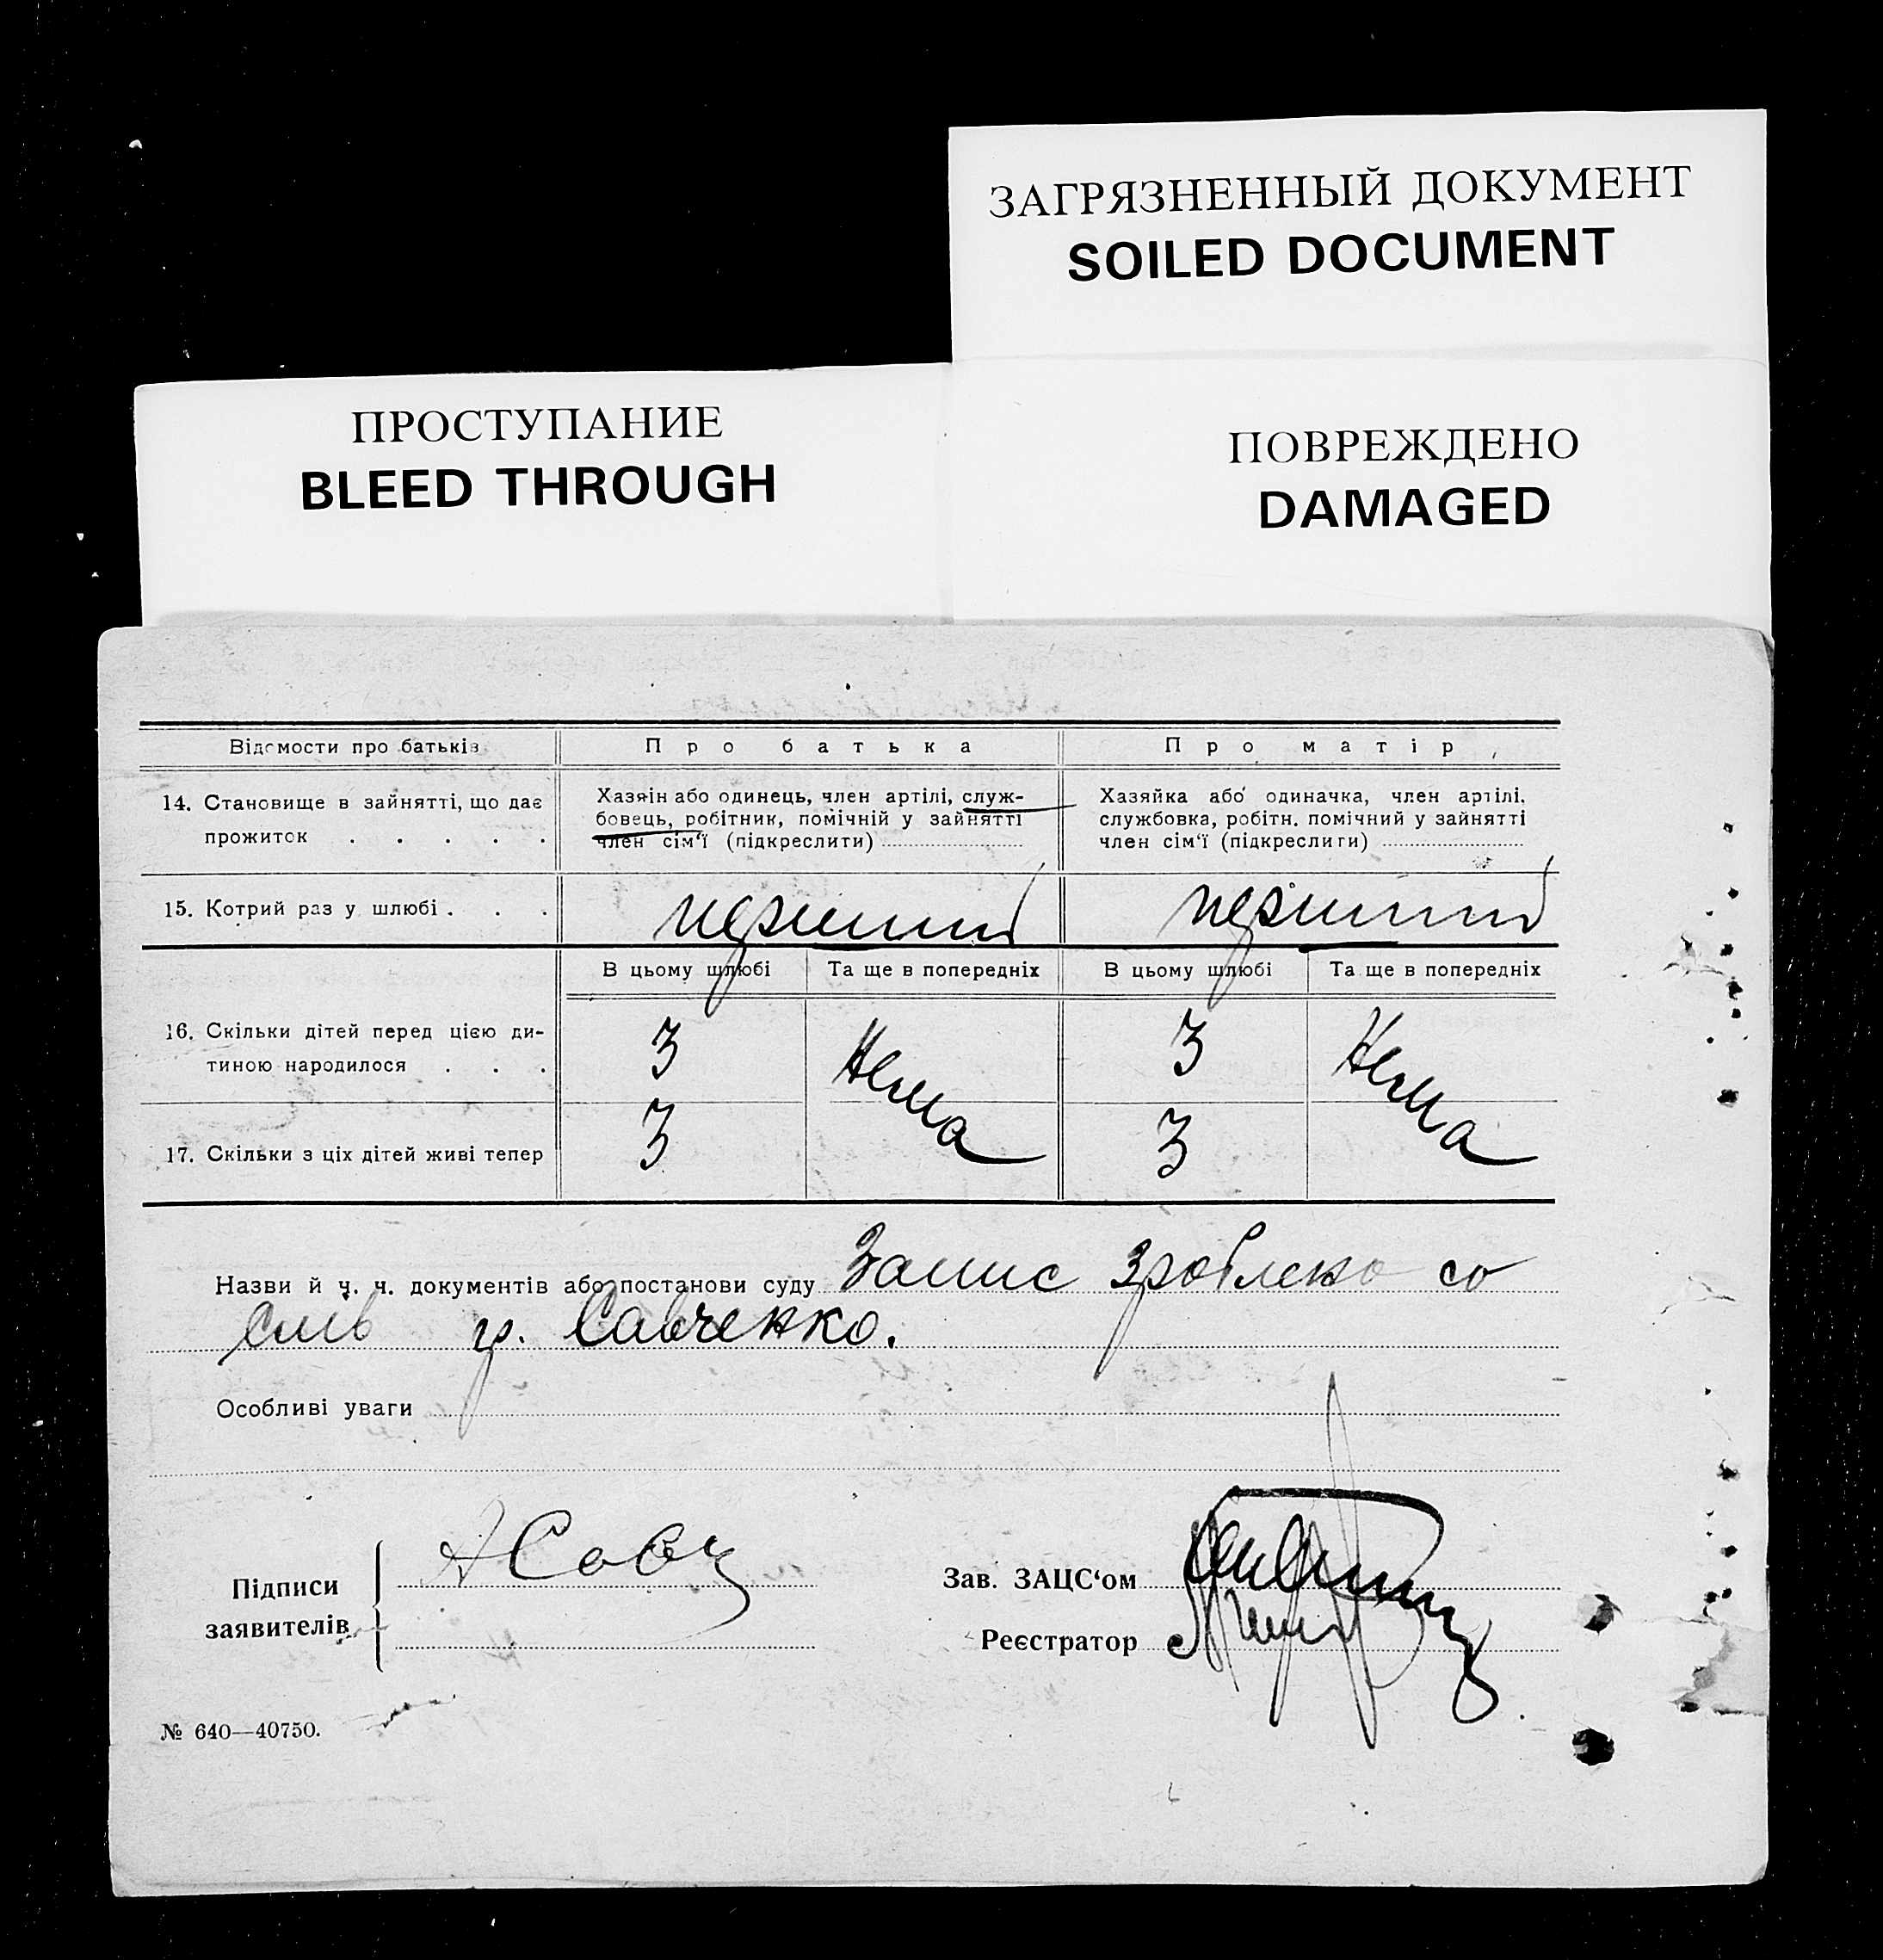 ЗАГРЯЗНЕННЫЙ ДОКУМЕНТ
SOILED DOCUMENT
ПРОСТУПАНИЕ
BLEED THROUGH
ПОВРЕЖДЕНО
DAMAGED
Відомости про батьків
Про батька
Про матір
14. Становище в зайнятті, що дає
прожиток . . . . .
Хазяїн або одинець, член артілі, служ-
бовець, робітник, помічній у зайнятті
член сім'ї (підкреслити)
Хазяйка або одиначка, член артілі,
службовка, робітн. помічний у зайнятті
член сім'ї (підкреслити)
15. Котрий раз у шлюбі . . .
перший
перший
В цьому шлюбі
Та ще в попередніх
В цьому шлюбі
Та ще в попередніх
16. Скільки дітей перед цією ди-
тиною народилося . . .
3
Нема
3
Нема
17. Скільки з ціх дітей живі тепер
3
3
Назви й ч. ч. документів або постанови суду Запис зроблено со
слів гр. Савченко.
Особливі уваги
Підписи
заявителів
АСавч
Зав. ЗАЦС'ом
Реєстратор
№ 640—40750.